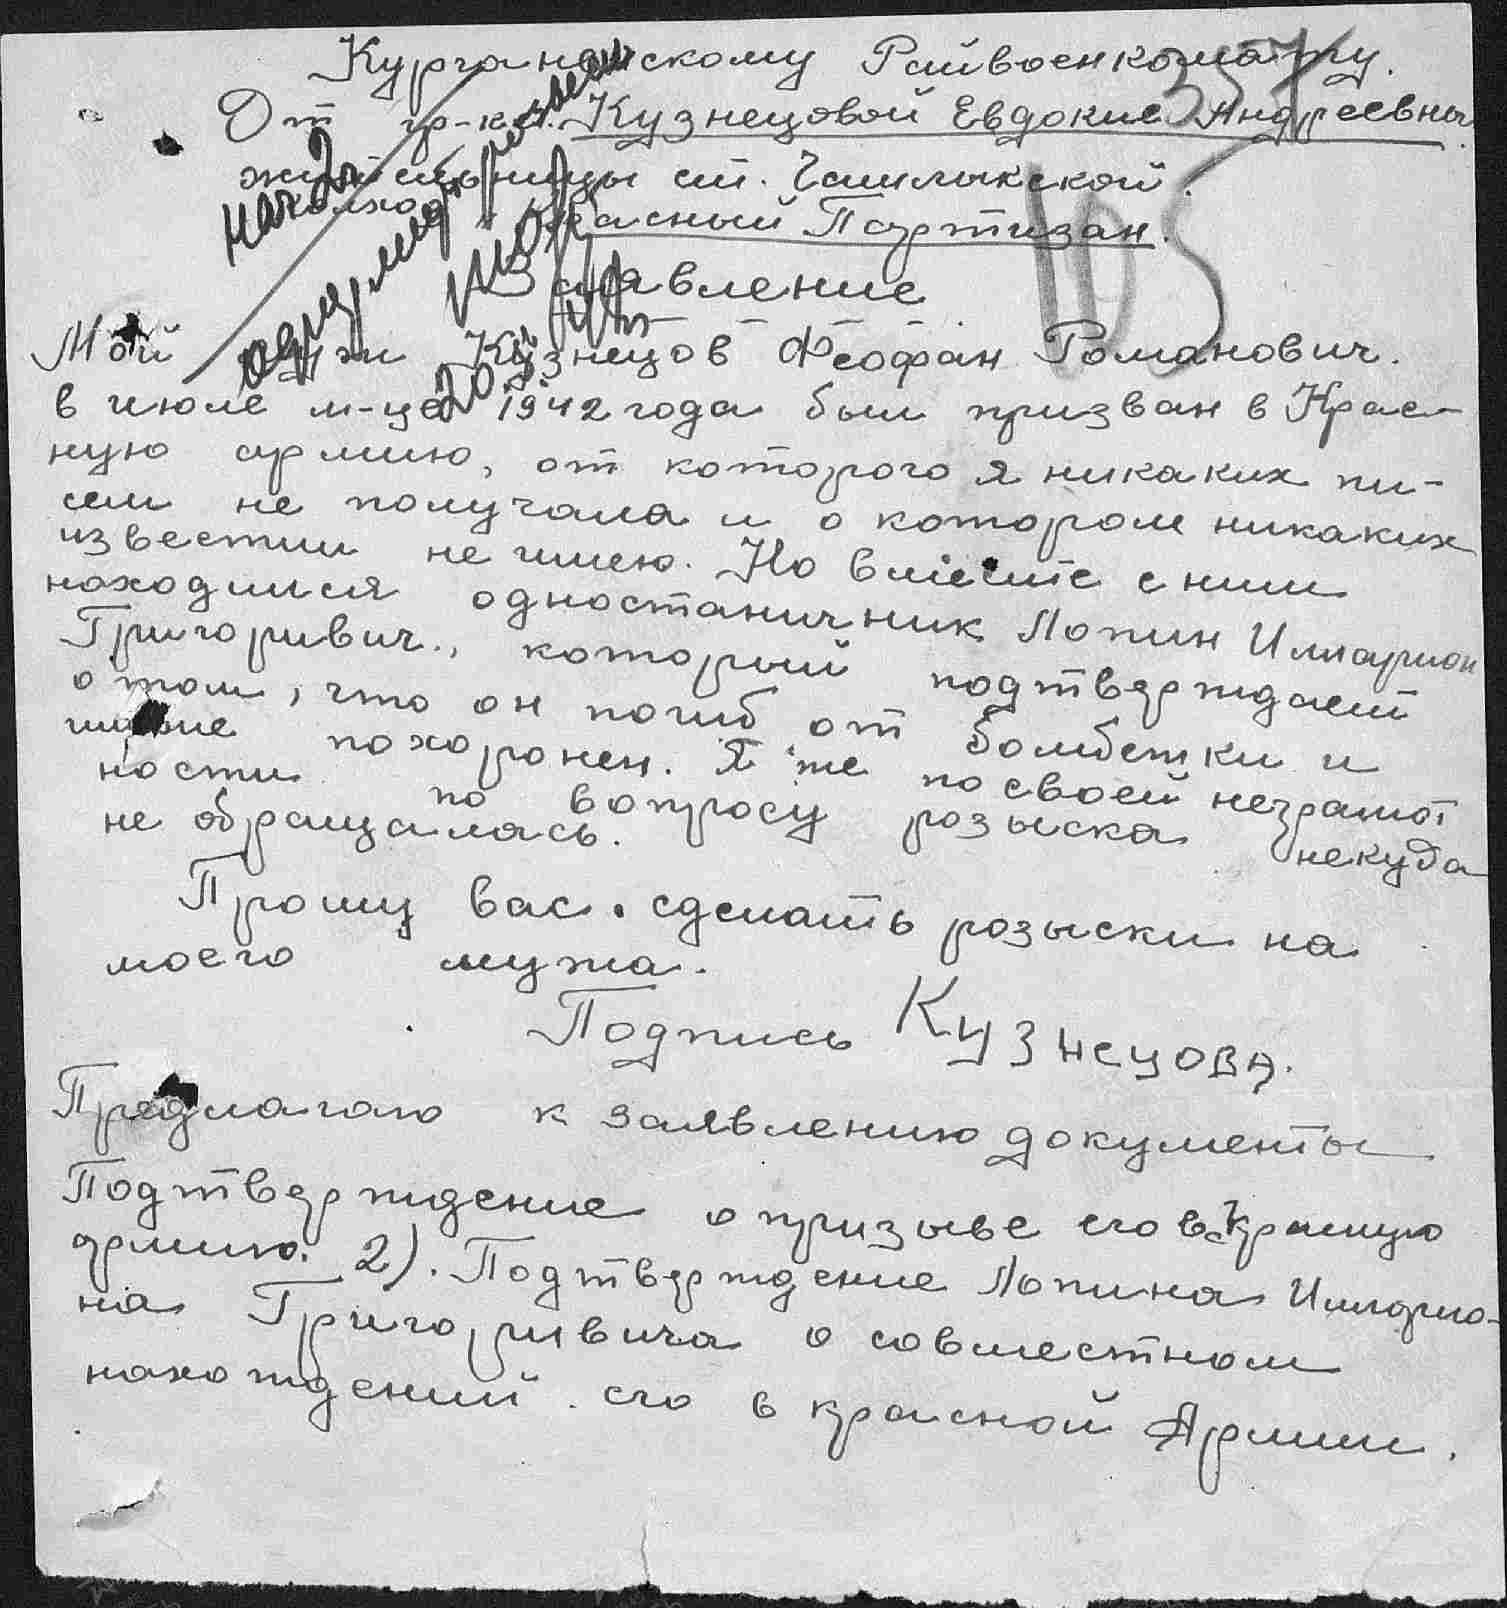 Курганенскому Райвоенкомату.
От гр-ки. Кузнецовой Евдокие Андреевны
жительницы ст. Чамлыкской.
колхоз Красный Партизан.
Заявление
Мой муж Кузнецов Феофан Романович.
в июле м-це 1942 года был призван в Крас-
ную армию, от которого я никаких пи-
сем не получала и о котором никаких
известии не имею. Но вместе с ним
находился одностаничник Лопин Илларион
Григоривич., который подтверждает
о том, что он погиб от бомбежки и
похоронен. Я же по своей неграмот
ности по вопросу розыска некуда
не обращалась.
Прошу вас. сделать розыски на
моего мужа.
Подпись Кузнецова.
Предлагаю к заявлению документы
Подтверждение о призыве его в Красную
армию. 2). Подтверждение Лопина Илларио-
на Григоривича о совместном
нахождений его в красной Армии.
357
105